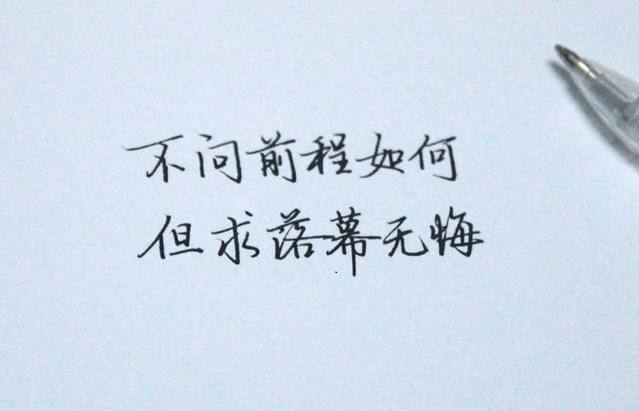 不问前程如何
但求落幕无悔